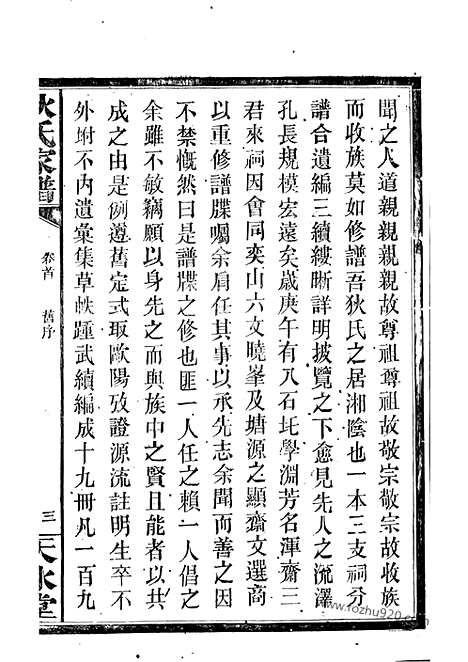 聞之人道親親親親故尊祖尊祖故敬宗敬宗故收族
而收族莫如修譜吾狄氏之居湘陰也一本三支祠分
譜合遺編三續縷晰詳明披覽之下愈見先人之流澤
孔長規模宏遠矣歲庚午有入石圫學淵芳名渾齋三
君來祠因會同奕山六文曉峯及塘源之顯齋文選商
以重修譜牒囑余肩任其事以承先志余聞而善之因
不禁慨然曰譜牒之修也匪一人任之賴一人倡之
余雖不敏竊願以身先之而與族中之賢且能者以共
成之由是例遵舊定式取歐陽攷證源流註明生卒不
外坿不內遺彙集草帙踵武續編成十九冊凡一百九
狄氏家譜
卷首 舊序
三
天水堂
www.fozhu920.com